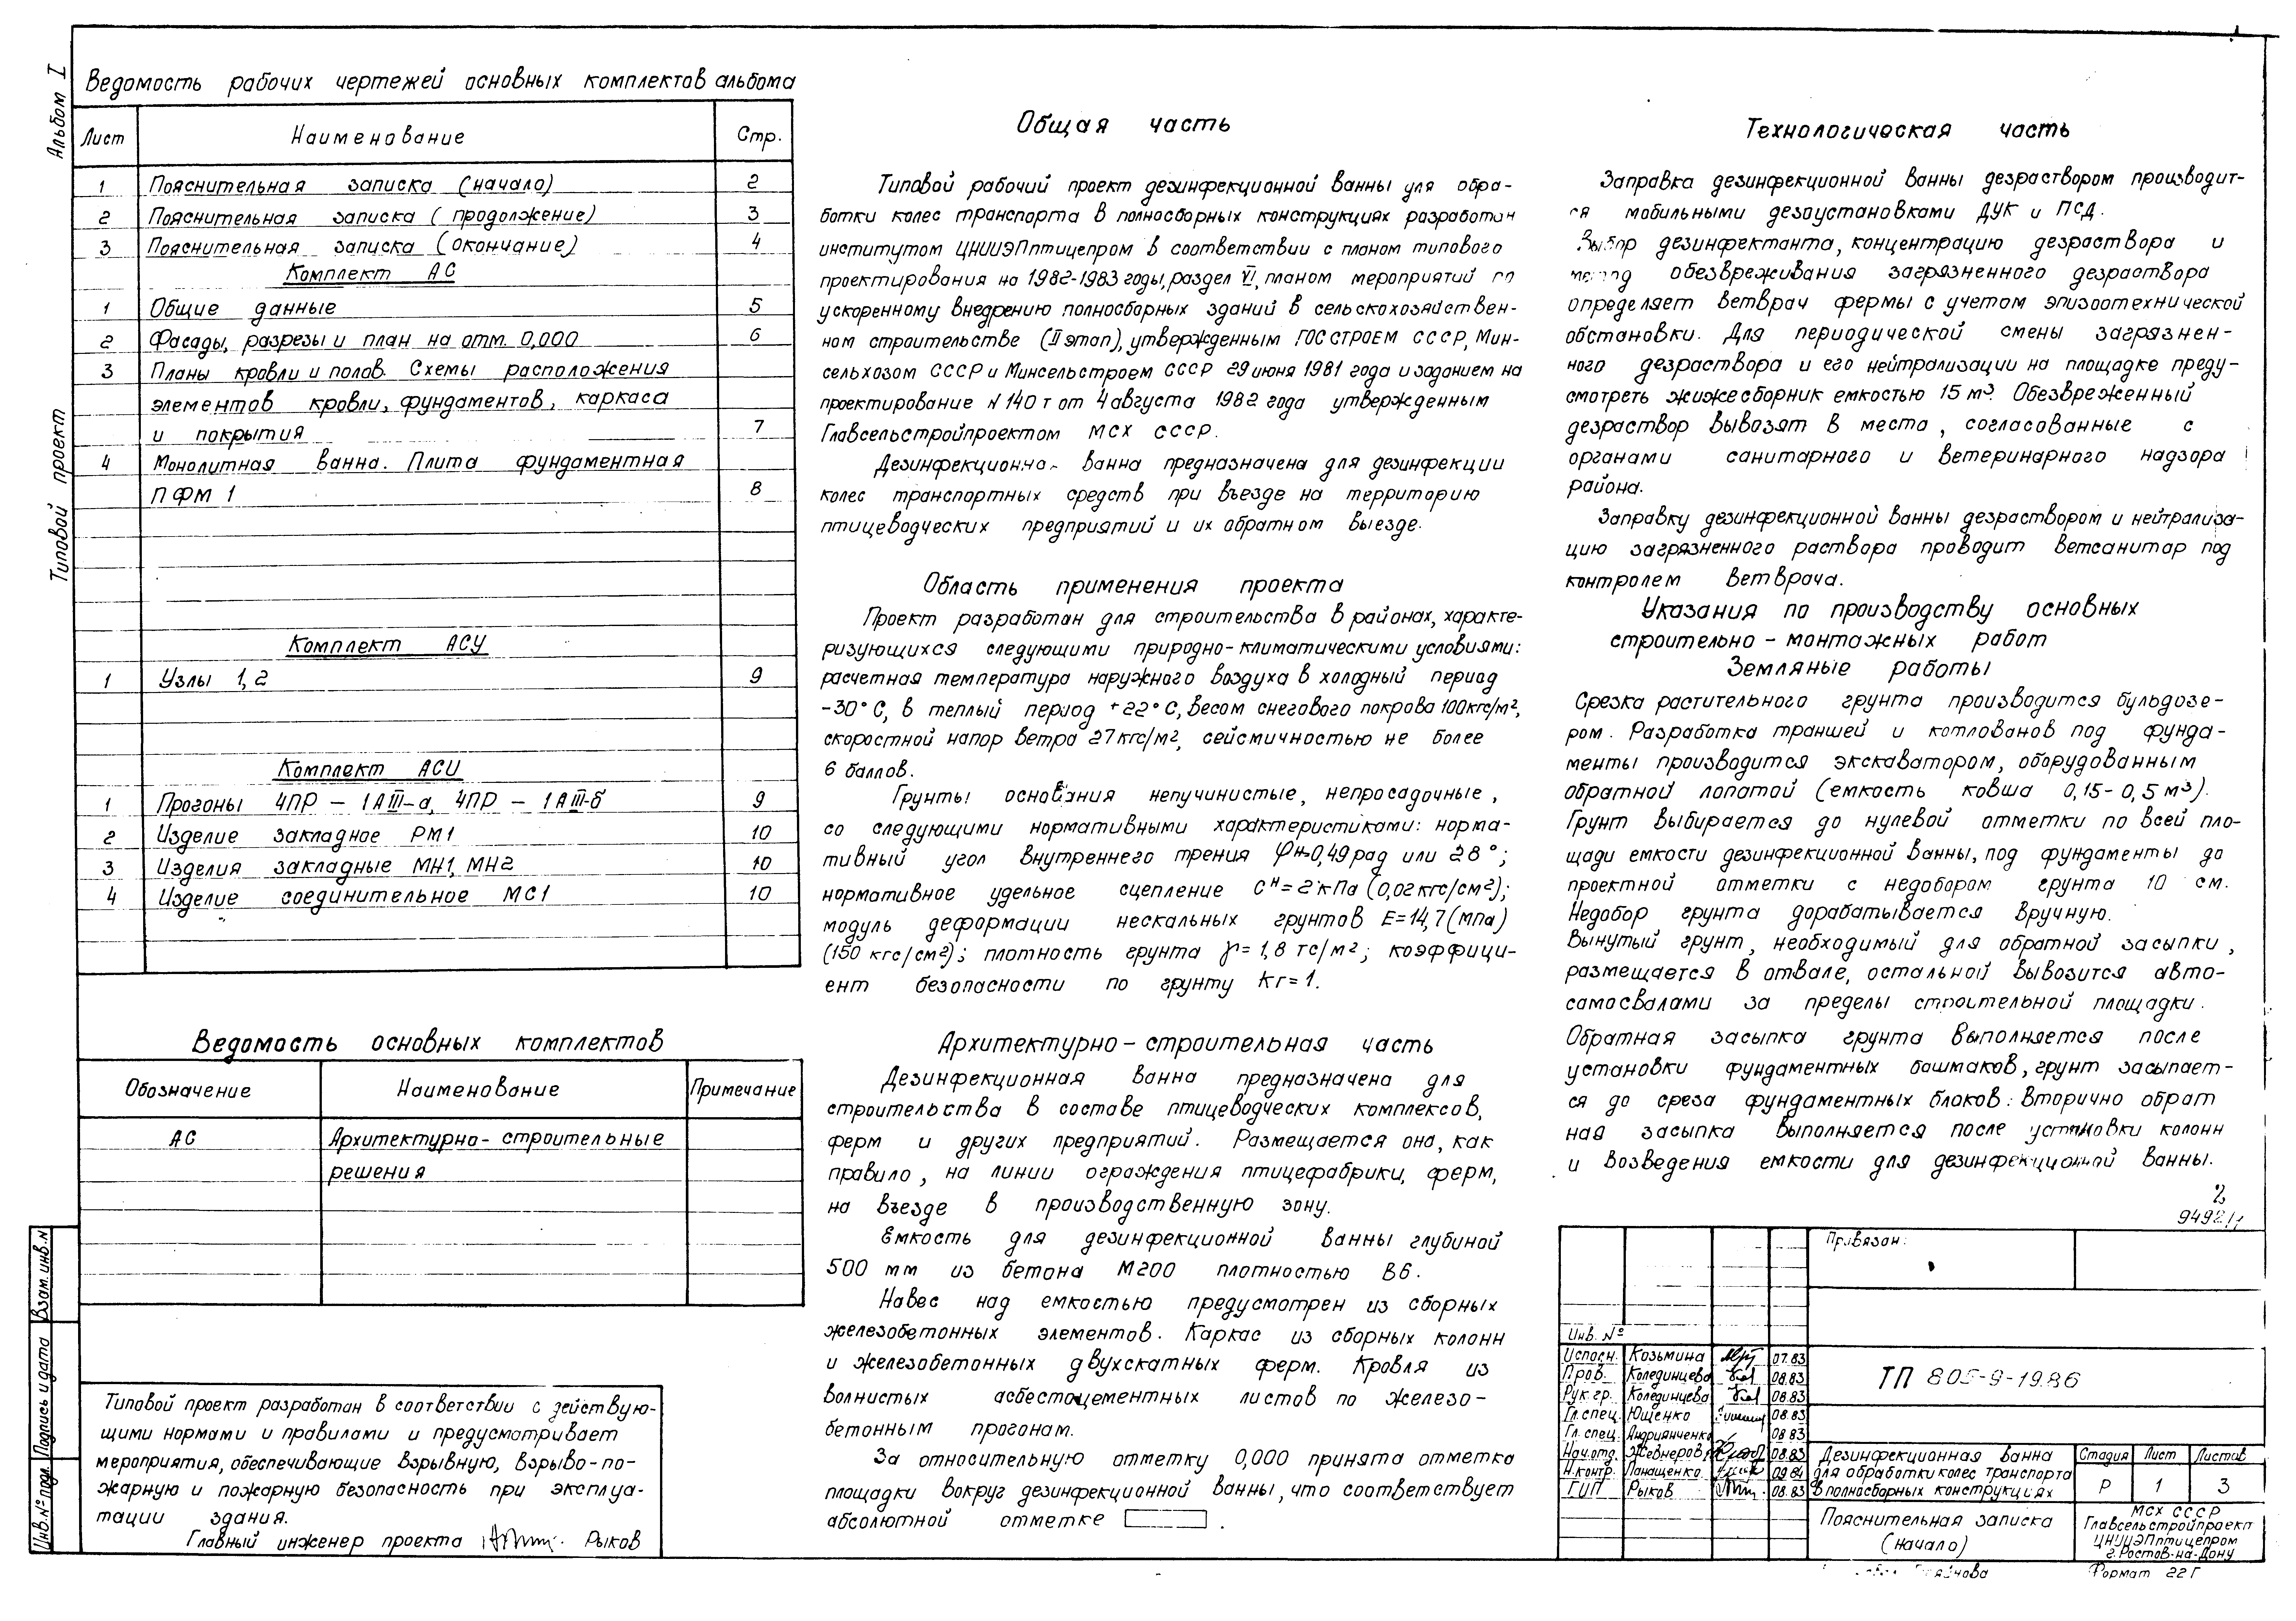 Альбом I
Типовой проект
Ведомость рабочих чертежей основных комплектов альбома
Лист Наименование Стр.
1 Пояснительная записка (начало) 2
2 Пояснительная записка (продолжение) 3
3 Пояснительная записка (окончание) 4
Комплект АС
1 Общие данные 5
2 Фасады, разрезы и план на отм. 0,000 6
3 Планы кровли и полов. Схемы расположения
элементов кровли, фундаментов, каркаса
и покрытия 7
4 Монолитная ванна. Плита фундаментная
ПФМ 1 8
Комплект АСУ
1 Узлы 1,2 9
Комплект АСИ
1 Прогоны 4ПР – 1АIII-а, 4ПР – 1АIII-б 9
2 Изделие закладное РМ1 10
3 Изделия закладные МН1, МН2 10
4 Изделие соединительное МС1 10
Ведомость основных комплектов
Обозначение Наименование Примечание
АС Архитектурно-строительные
решения
Типовой проект разработан в соответствии с действую-
щими нормами и правилами и предусматривает
мероприятия, обеспечивающие взрывную, взрыво-по-
жарную и пожарную безопасность при эксплуа-
тации здания.
Главный инженер проекта Рыков
Взам. инв. N
Подпись и дата
Инв. № подл.
Общая часть
Типовой рабочий проект дезинфекционной ванны для обра-
ботки колес транспорта в полносборных конструкциях разработан
институтом ЦНИИЭПптицепром в соответствии с планом типового
проектирования на 1982-1983 годы, раздел VI, планом мероприятий по
ускоренному внедрению полносборных зданий в сельскохозяйствен-
ном строительстве (II этап), утвержденным ГОССТРОЕМ СССР, Мин-
сельхозом СССР и Минсельстроем СССР 29 июня 1981 года и заданием на
проектирование N 140 т от 4 августа 1982 года утвержденным
Главсельстройпроектом МСХ СССР.
Дезинфекционная ванна предназначена для дезинфекции
колес транспортных средств при въезде на территорию
птицеводческих предприятий и их обратном выезде.
Область применения проекта
Проект разработан для строительства в районах, характе-
ризующихся следующими природно-климатическими условиями:
расчетная температура наружного воздуха в холодный период
-30°С, в теплый период +22°С, весом снегового покрова 100 кгс/м²,
скоростной напор ветра 27 кгс/м², сейсмичностью не более
6 баллов.
Грунты основания непучинистые, непросадочные,
со следующими нормативными характеристиками: норма-
тивный угол внутреннего трения φн=0,49 рад или 28°;
нормативное удельное сцепление Сн=2кПа (0,02 кгс/см²);
модуль деформации нескальных грунтов Е=14,7 (мПа)
(150 кгс/см²); плотность грунта γ=1,8 тс/м²; коэффици-
ент безопасности по грунту Кг=1.
Архитектурно-строительная часть
Дезинфекционная ванна предназначена для
строительства в составе птицеводческих комплексов,
ферм и других предприятий. Размещается она, как
правило, на линии ограждения птицефабрики, ферм,
на въезде в производственную зону.
Емкость для дезинфекционной ванны глубиной
500 мм из бетона М200 плотностью В6.
Навес над емкостью предусмотрен из сборных
железобетонных элементов. Каркас из сборных колонн
и железобетонных двухскатных ферм. Кровля из
волнистых асбестоцементных листов по железо-
бетонным прогонам.
За относительную отметку 0,000 принята отметка
площадки вокруг дезинфекционной ванны, что соответствует
абсолютной отметке .
Технологическая часть
Заправка дезинфекционной ванны дезраствором производит-
ся мобильными дезоустановками ДУК и ПСД.
Выбор дезинфектанта, концентрацию дезраствора и
метод обезвреживания загрязненного дезраствора
определяет ветврач фермы с учетом эпизоотехнической
обстановки. Для периодической смены загрязнен-
ного дезраствора и его нейтрализации на площадке преду-
смотреть жижесборник емкостью 15 м³. Обезвреженный
дезраствор вывозят в места, согласованные с
органами санитарного и ветеринарного надзора
района.
Заправку дезинфекционной ванны дезраствором и нейтрализа-
цию загрязненного раствора проводит ветсанитар под
контролем ветврача.
Указания по производству основных
строительно-монтажных работ
Земляные работы
Срезка растительного грунта производится бульдозе-
ром. Разработка траншей и котлованов под фунда-
менты производится экскаватором, оборудованным
обратной лопатой (емкость ковша 0,15-0,5 м³).
Грунт выбирается до нулевой отметки по всей пло-
щади емкости дезинфекционной ванны, под фундаменты до
проектной отметки с недобором грунта 10 см.
Недобор грунта дорабатывается вручную.
Вынутый грунт, необходимый для обратной засыпки,
размещается в отвале, остальной вывозится авто-
самосвалами за пределы строительной площадки.
Обратная засыпка грунта выполняется после
установки фундаментных башмаков, грунт засыпает-
ся до среза фундаментных блоков. Вторично обрат
ная засыпка выполняется после установки колонн
и возведения емкости для дезинфекционной ванны.
2
9492/1
Привязан:
Инв. №
Исполн. Козьмина 07.83
Пров. Колединцева 08.83
Рук. гр. Колединцева 08.83
Гл. спец. Ющенко 08.83
Гл. спец. Андриянченко 08.83
Нач. отд. Жевнеров 08.83
Н.контр. Панащенко 09.84
ГИП Рыков 08.83
ТП 805-9-19.86
Дезинфекционная ванна
для обработки колес транспорта
в полносборных конструкциях
Стадия Лист Листов
Р 1 3
Пояснительная записка
(начало)
МСХ СССР
Главсельстройпроект
ЦНИИЭПптицепром
г. Ростов-на-Дону
Формат 22Г